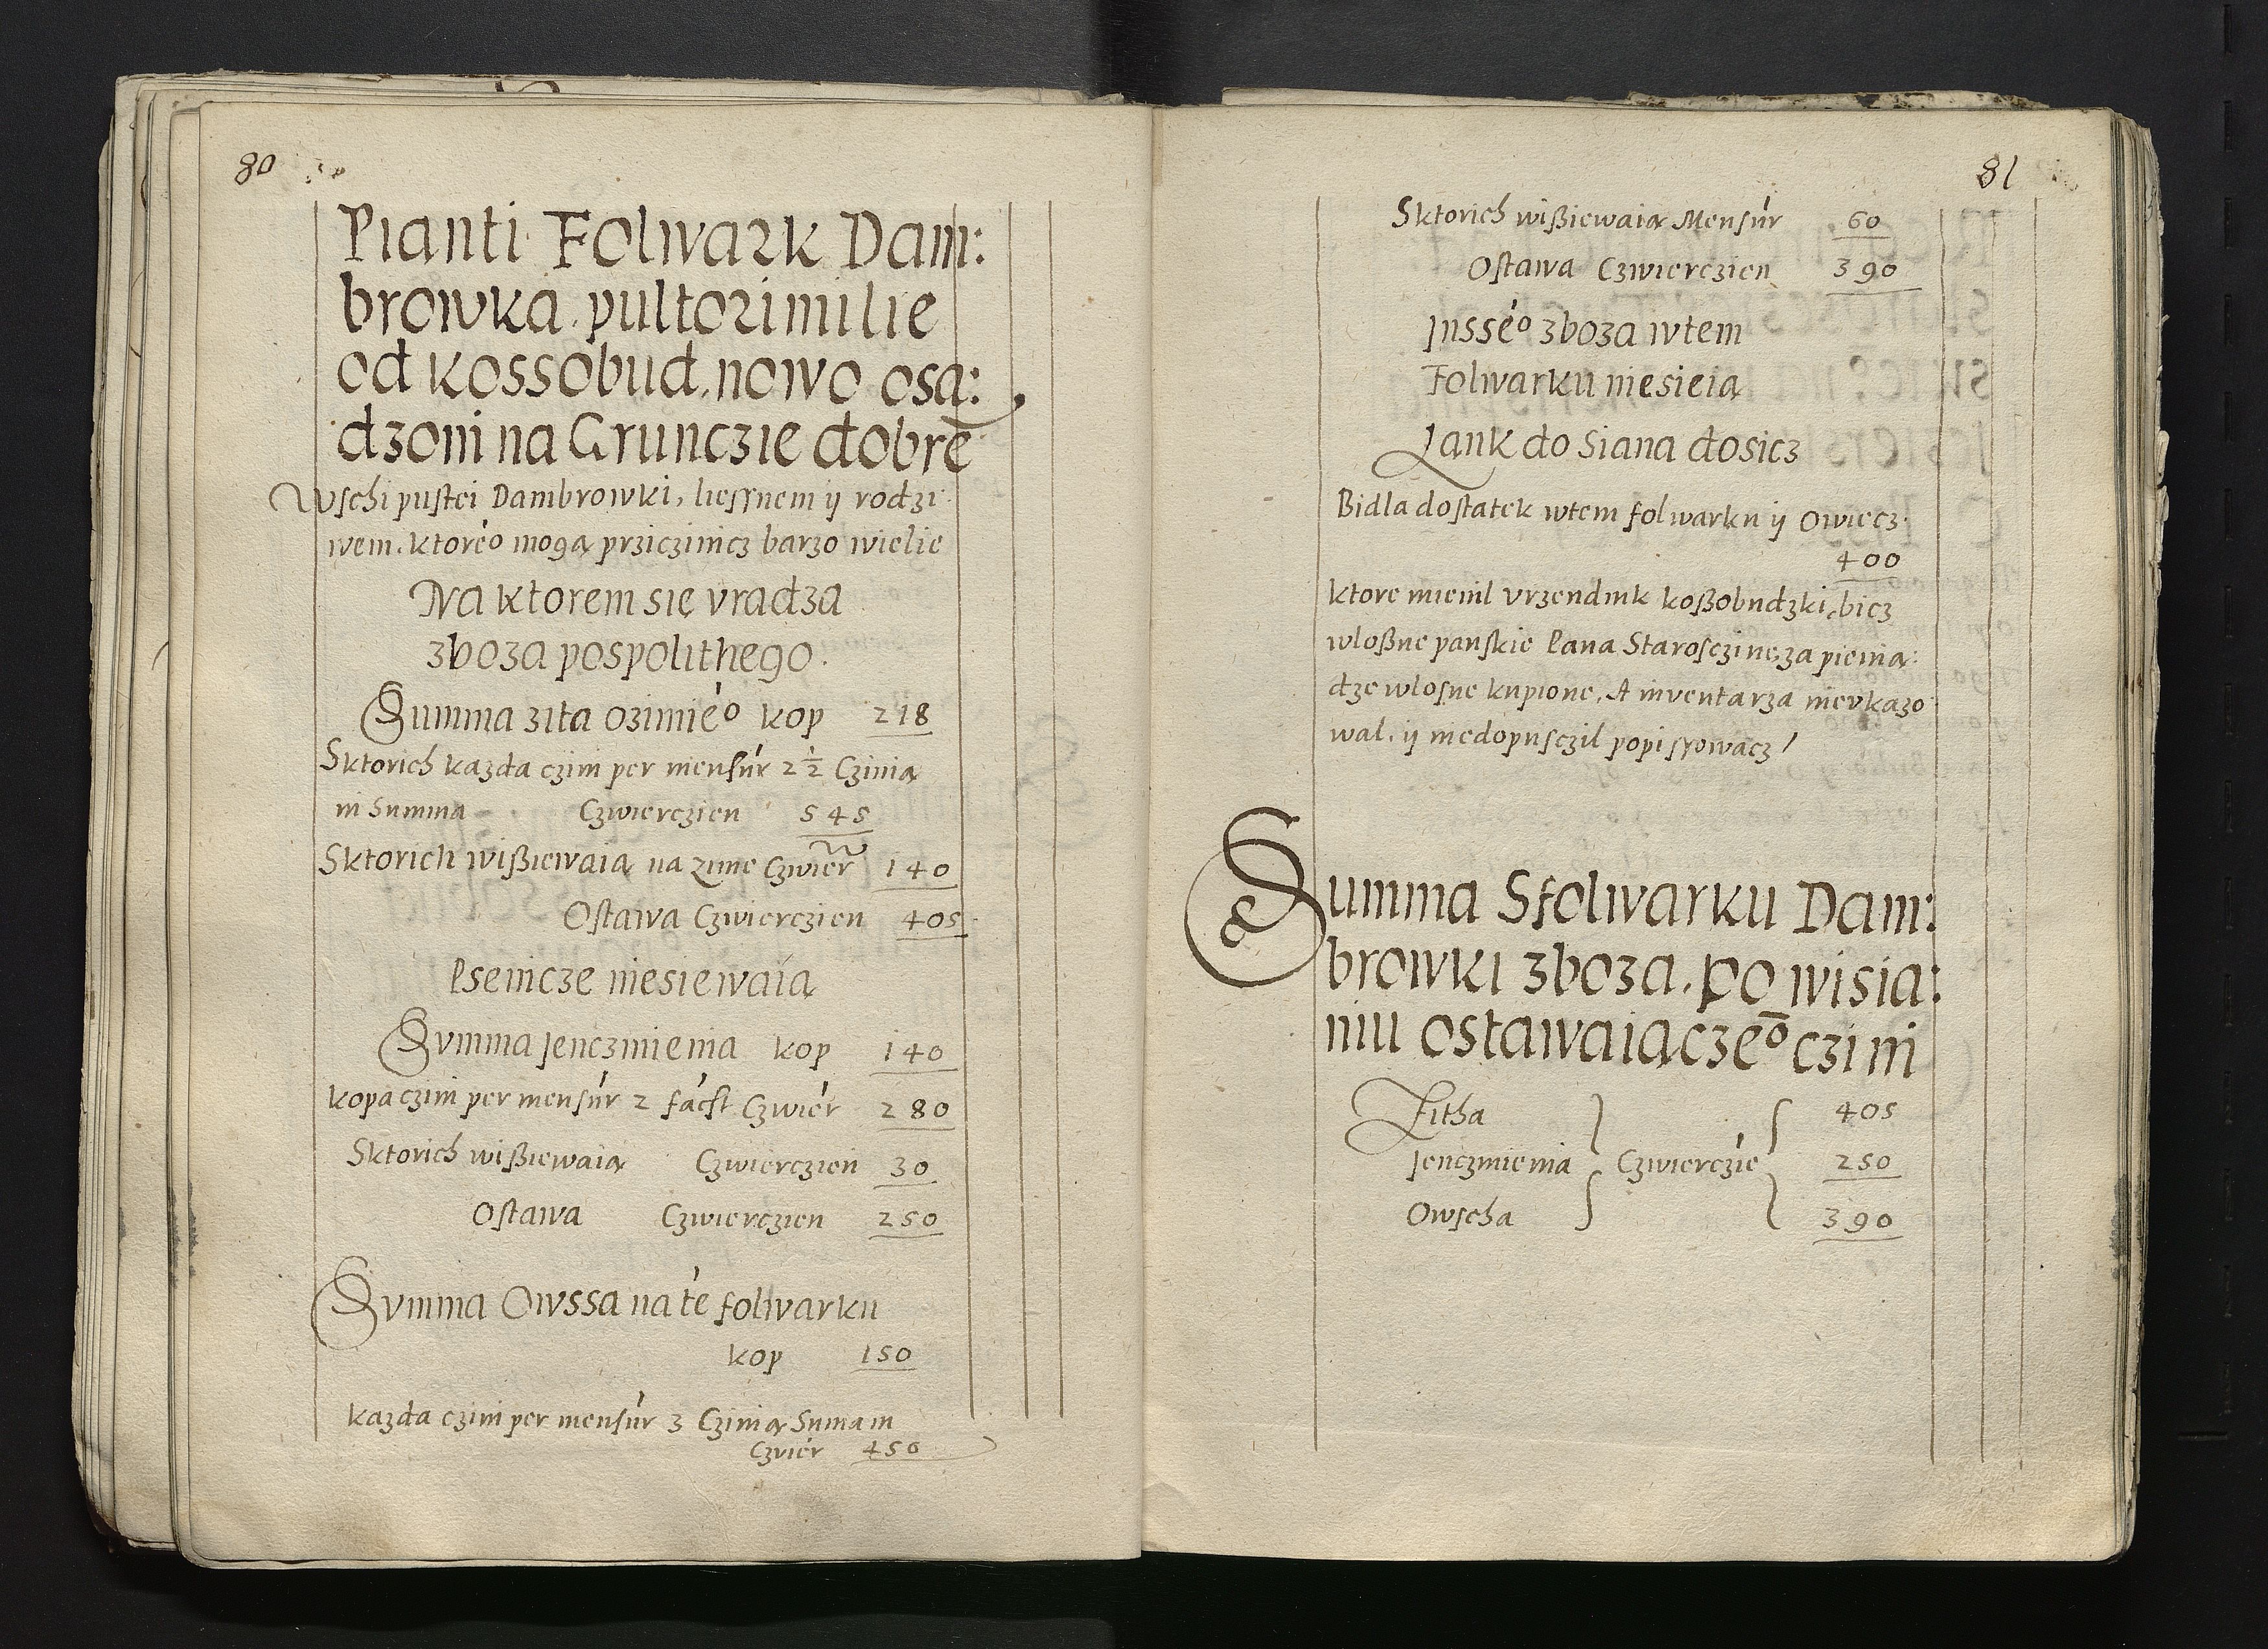 80
Pianti Folwark Dam:
browka. pultori milie
od kossobud. nowo osa:
dzoni na Grunczie dobrē
Wschi pustei Dambrowki, liessnem ij rodzi
wem. ktoréo mogą prziczinicz barzo wielie
Na ktorem się vradza
zboza pospolithego.
Summa zita oziniéo kop 218
Sktorich kazda czini per mensúr 2 1/2 Czinią
in Summa Czwierczien 545
Sktorich wißiewaią na zime Czwier 140
Ostawa Czwierczien 405
Psenicze niesiewaią
Svmma Jenczmienia kop 140
kopa czini per mensúr 2 fácst Czwiér 280
Sktorich wißiewaią Czwierczien 30
Ostawa Czwierczien 250
Svmma Owssa na té folwarku
kop 150
kazda czini per mensúr 3 Czinią Suma in
Czviér 450
81
Sktorich wißiewaią Mensúr 60
Ostawa Czwierczien 390
Jnsséo zboza wtem
Folwarku niesieią
Lank do Siana dosicz
Bidla dostatek wtem folwarku ij Owiecz
400
ktore mienil vrzendnik koßobudzki, bicz
wloßne panskie Pana Starosczine, za pienią:
dze wlosne kupione, A inventarza nievkazo
wal. ij niedopusczil popissowacz
Summa Sfolwarku Dam:
browki zboza. po wisia:
niu ostawaiączēo czini
Zitha 405
Jenczmienia Czwierczié 250
Owscha 390